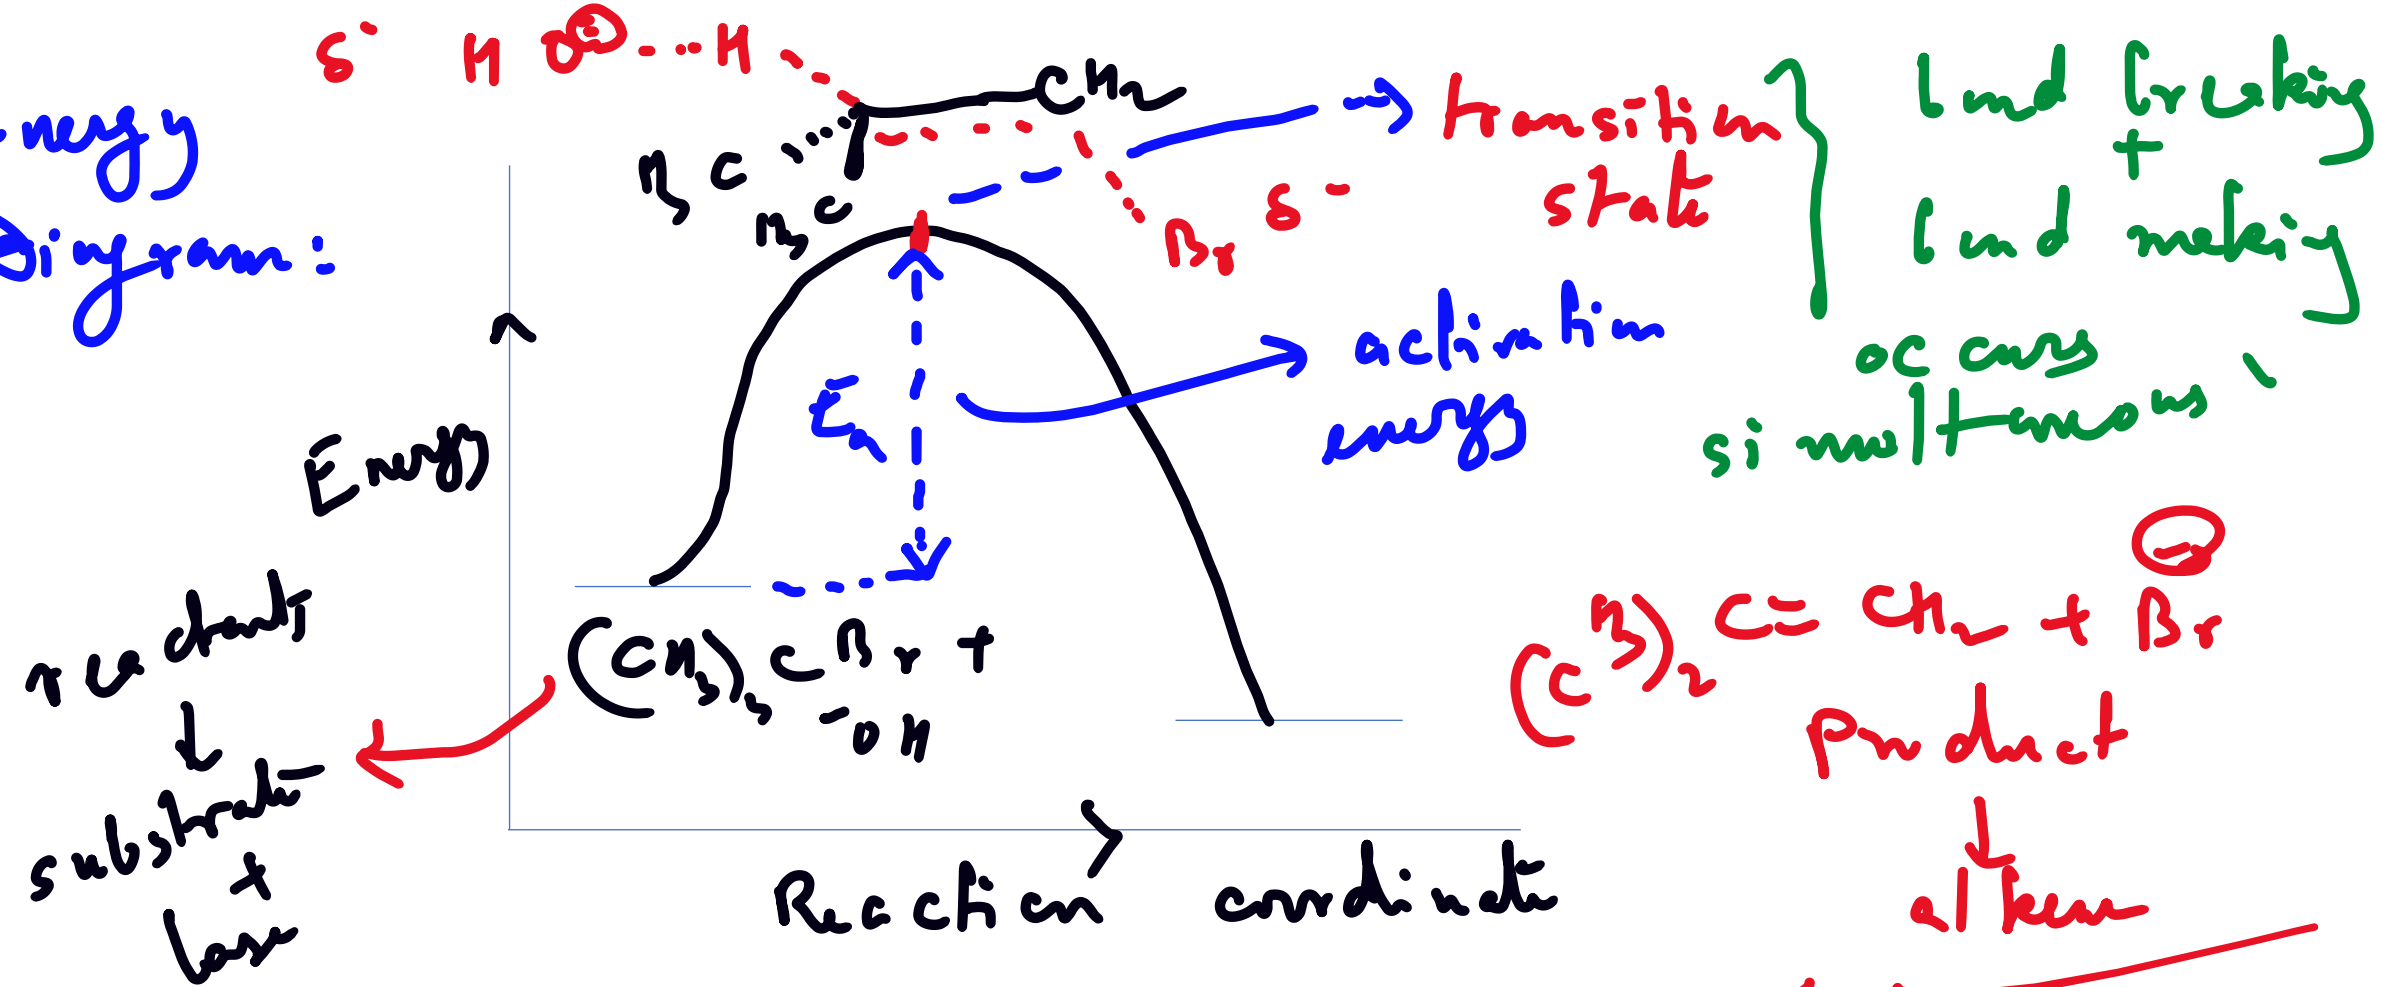 δ⁻ HO⊖ ... H
CH₂
H₃C
H₃C
Br δ⁻
transition
state
bond breaking
+
bond making
occurs
simultaneous
Energy
Diagram:
Energy
Ea
activation
energy
reactants
↓
substrate
+
base
(CH₃)₃CBr +
⁻OH
(CH₃)₂C=CH₂ + Br⊖
product
↓
alkene
Reaction coordinate